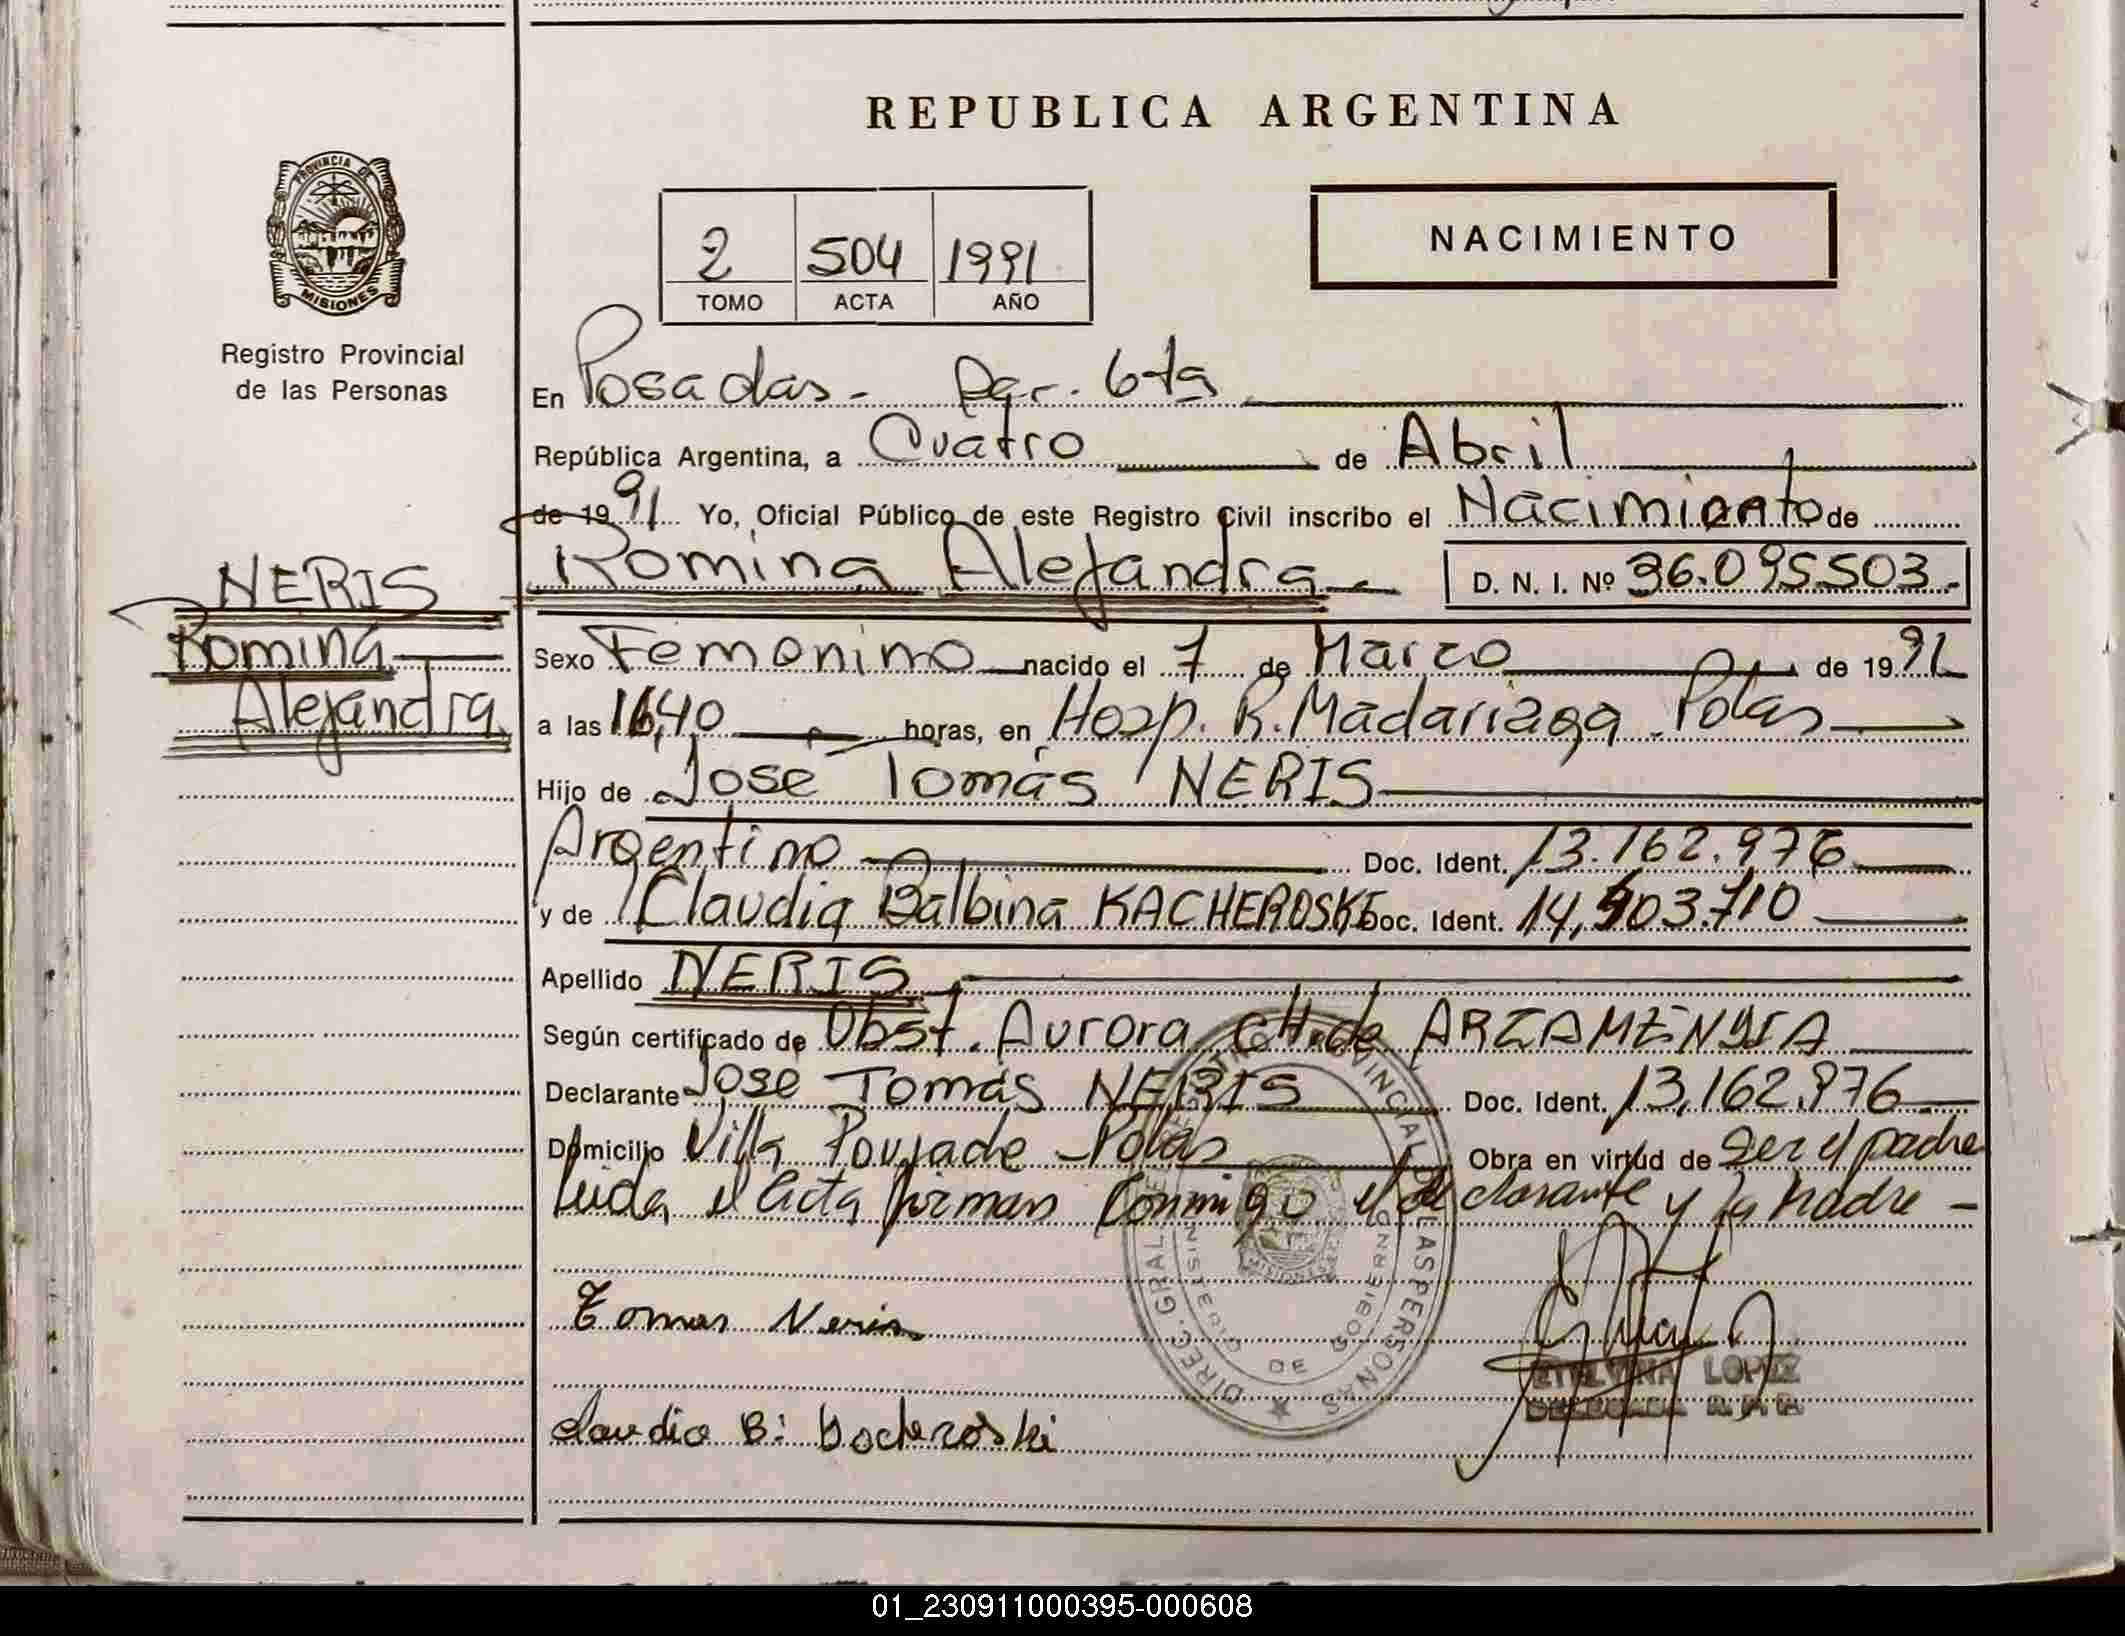 REPUBLICA ARGENTINA
PROVINCIA DE MISIONES
2 504 1991
TOMO ACTA AÑO
NACIMIENTO
Registro Provincial
de las Personas
En Posadas - 6ta
República Argentina, a Cuatro de Abril
de 1991 Yo, Oficial Público de este Registro Civil inscribo el Nacimiento de
Romina Alejandra D. N. I. Nº 36.095503.-
NERIS
Romina
Alejandra
Sexo Femenino nacido el 7 de Marzo de 1991
a las 16,40 horas, en Hosp. R. Madariaga - Pdas
Hijo de José Tomás NERIS
Argentino Doc. Ident. 13.162.976
y de Claudia Balbina KACHEROSKI Doc. Ident. 14,903.710
Apellido NERIS
Según certificado de Obst. Aurora CH. de ARZAMENDIA
Declarante José Tomás NERIS Doc. Ident. 13,162.976
Domicilio Villa Poujade - Pdas Obra en virtud de ser el padre
Leida el Acta firman conmigo el declarante y la Madre -
Tomas Neris
DIREC. GRAL. DE REGISTRO PROVINCIAL DE LAS PERSONAS
MINISTERIO DE GOBIERNO
MISIONES
ETELVINA LOPEZ
DELEGADA R. P. P.
Claudia B.
01_230911000395-000608